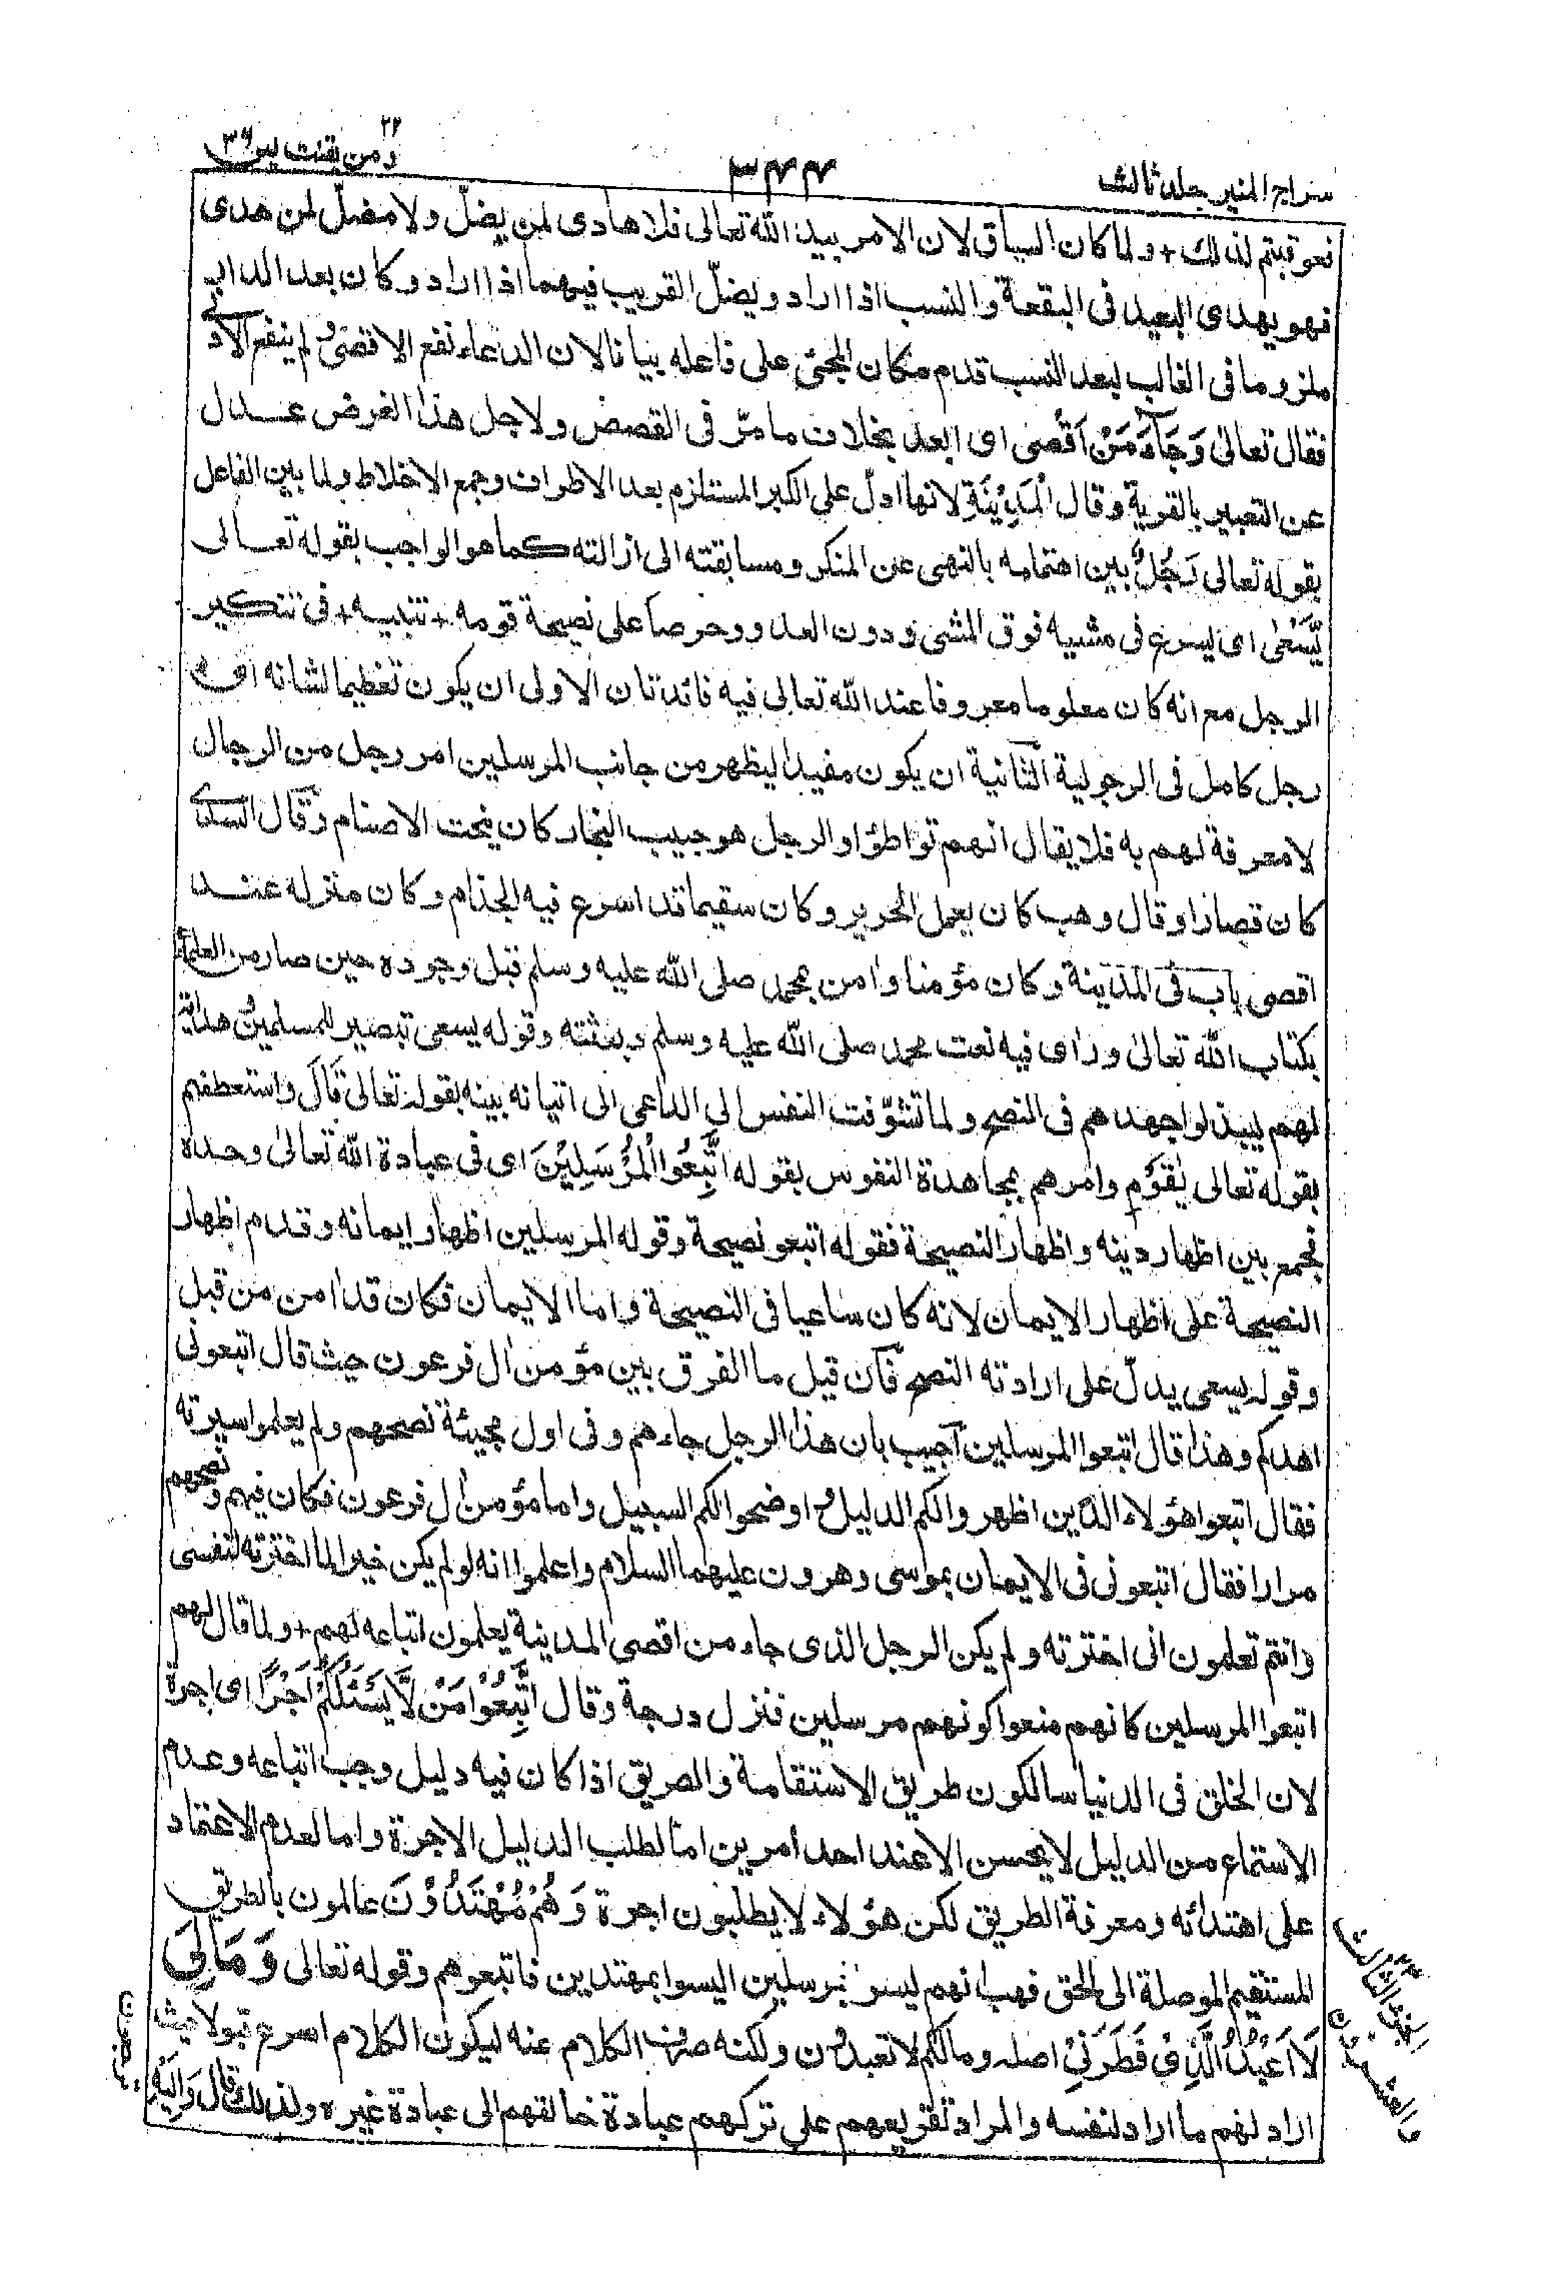 سراج المنير جلد ثالث
٣٤٤
٢٢
ومن يقنت يس ٣٦
فعوقبتم لذلك + ولما كان السياق لان الامر بيد الله تعالى فلا هادى لمن يضلّ ولا مضلّ لمن هدى
فهو يهدى البعيد فى البقعة والنسب اذا اراد ويضلّ القريب فيهما اذا اراد وكان بعد الدار
ملزوما فى الغالب لبعد النسب قدم مكان المجئ على فاعله بيانا لان الدعاء نفع الاقصى و لم ينفع الادنى
فقال تعالى وَجَآءَ مَنْ اَقْصٰى اى ابعد بخلاف ما مرّ فى القصص ولاجل هذا الغرض عدل
عن التعبير بالقرية وقال الْمَدِيْنَةِ لانها ادلّ على الكبر المستلزم بعد الاطراف وجمع الاخلاط ولما بين الفاعل
بقوله تعالى رَجُلٌ بين اهتمامه بالنهى عن المنكر ومسابقته الى ازالته كما هو الواجب بقوله تعالى
يَّسْعٰى اى يسرع فى مشيه فوق المشى ودون العدو وحرصا على نصيحة قومه + تنبيه + فى تنكير
الرجل مع انه كان معلوما معروفا عند الله تعالى فيه فائدتان الاولى ان يكون تعظيما لشانه اى
رجل كامل فى الرجولية الثانية ان يكون مفيدا ليظهر من جانب المرسلين امر رجل من الرجال
لا معرفة لهم به فلا يقال انهم تواطؤا والرجل هو حبيب النجار كان ينحت الاصنام وقال السدى
كان قصارا وقال وهب كان يعمل الحرير وكان سقيما قد اسرع فيه الجذام وكان منزله عند
اقصى باب فى المدينة وكان مؤمنا وامن بمحمد صلى الله عليه وسلم قبل وجوده حين صار من العلماء
بكتاب الله تعالى وراى فيه نعت محمد صلى الله عليه وسلم وبعثته وقوله يسعى تبصير للمسلمين وهداية
لهم ليبذلوا جهدهم فى النصح ولما تشوّفت النفس الى الداعى الى اتيانه بينه بقوله تعالى قَالَ واستعطفهم
بقوله تعالى يٰقَوْمِ وامرهم بمجاهدة النفوس بقوله اتَّبِعُوا الْمُرْسَلِيْنَ اى فى عبادة الله تعالى وحده
فجمع بين اظهار دينه واظهار النصيحة فقوله اتبعو نصيحة وقوله المرسلين اظهار ايمانه وقدم اظهار
النصيحة على اظهار الايمان لانه كان ساعيا فى النصيحة واما الايمان فكان قد امن من قبل
وقوله يسعى يدلّ على ارادته النصح فان قيل ما الفرق بين مؤمن ال فرعون حيث قال اتبعونى
اهدكم وهذا قال اتبعوا المرسلين اجيب بان هذا الرجل جاءهم وفى اول مجيئة نصحهم ولم يعلموا سيرته
فقال اتبعوا هؤلاء الذين اظهروا لكم الدليل و اوضحوا لكم السبيل واما مؤمن ال فرعون فكان فيهم ونصحهم
مرارا فقال اتبعونى فى الايمان بموسى وهرون عليهما السلام واعلموا انه لو لم يكن خيرا لما اخترته لنفسى
وانتم تعلمون انى اخترته ولم يكن الرجل الذى جاء من اقصى المدينة يعلمون اتباعه لهم + ولما قال لهم
اتبعوا المرسلين كانهم منعوا كونهم مرسلين فنزل درجة وقال اتَّبِعُوْا مَنْ لَّا يَسْئَلُكُمْ اَجْرًا اى اجرة
لان الخلق فى الدنيا سالكون طريق الاستقامة والطريق اذا كان فيه دليل وجب اتباعه وعدم
الاستماع من الدليل لا يحسن الا عند احد امرين اما لطلب الدليل الاجرة واما لعدم الاعتماد
على اهتدائه ومعرفة الطريق لكن هؤلاء لا يطلبون اجرة وَهُمْ مُّهْتَدُوْنَ عالمون بالطريق
المستقيم الموصلة الى الحق فهب انهم ليسو بمرسلين اليسوا بمهتدين فاتبعوهم وقوله تعالى وَمَا لِىَ
لَا اَعْبُدُ الَّذِىْ فَطَرَنِىْ اصله ومالكم لا تعبدون ولكنه صرف الكلام عنه ليكون الكلام اسرع قبولا حيث
اراد لهم ما اراد لنفسه والمراد تقريعهم على تركهم عبادة خالقهم الى عبادة غيره ولذلك قال وَاِلَيْهِ
ترجعون
الجزء الثالث
والعشرون